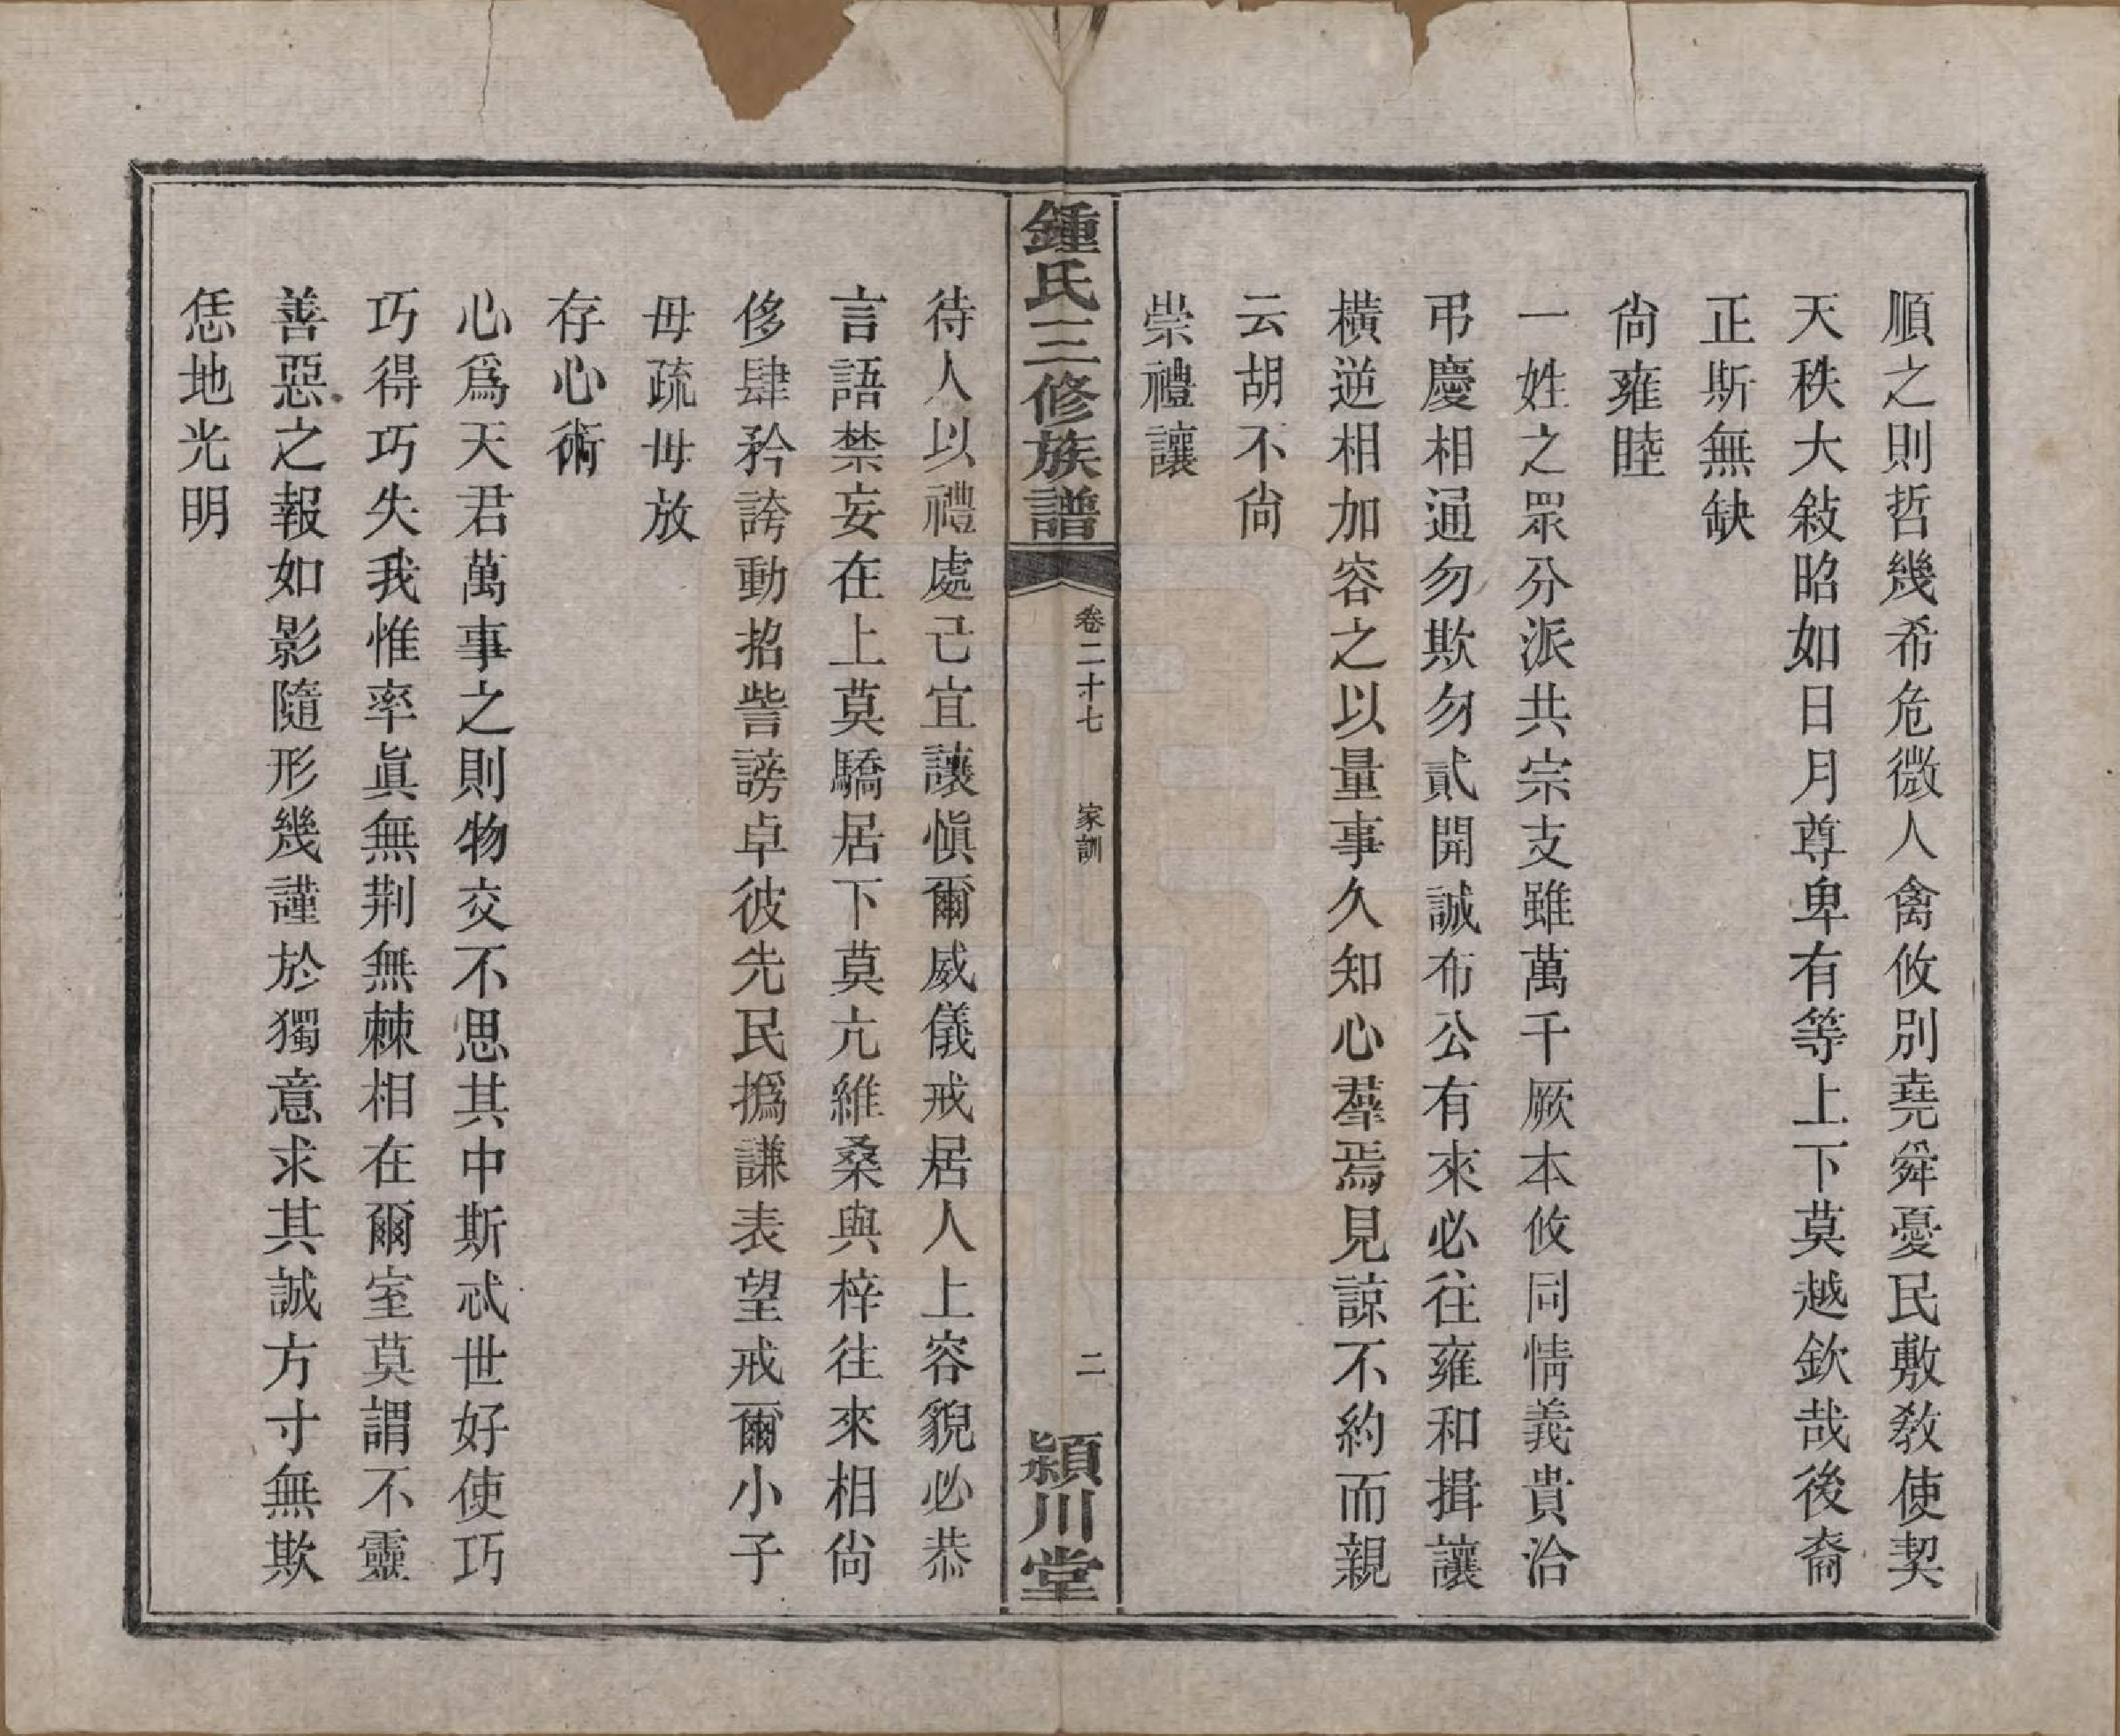 順之則哲幾希危微人禽攸別堯舜憂民敷教使契
天秩大敍昭如日月尊卑有等上下莫越欽哉後裔
正斯無缺
尙雍睦
一姓之眾分派共宗支雖萬千厥本攸同情義貴洽
弔慶相通勿欺勿貳開誠布公有來必往雍和揖讓
橫逆相加容之以量事久知心羣焉見諒不約而親
云胡不尙
崇禮讓
鍾氏三修族譜
卷二十七
家訓
二
潁川堂
待人以禮處己宜讓愼爾威儀戒居人上容貌必恭
言語禁妄在上莫驕居下莫亢維桑與梓往來相尙
侈肆矜誇動招訾謗卓彼先民撝謙表望戒爾小子
毋疏毋放
存心術
心爲天君萬事之則物交不思其中斯忒世好使巧
巧得巧失我惟率眞無荆無棘相在爾室莫謂不靈
善惡之報如影隨形幾謹於獨意求其誠方寸無欺
恁地光明